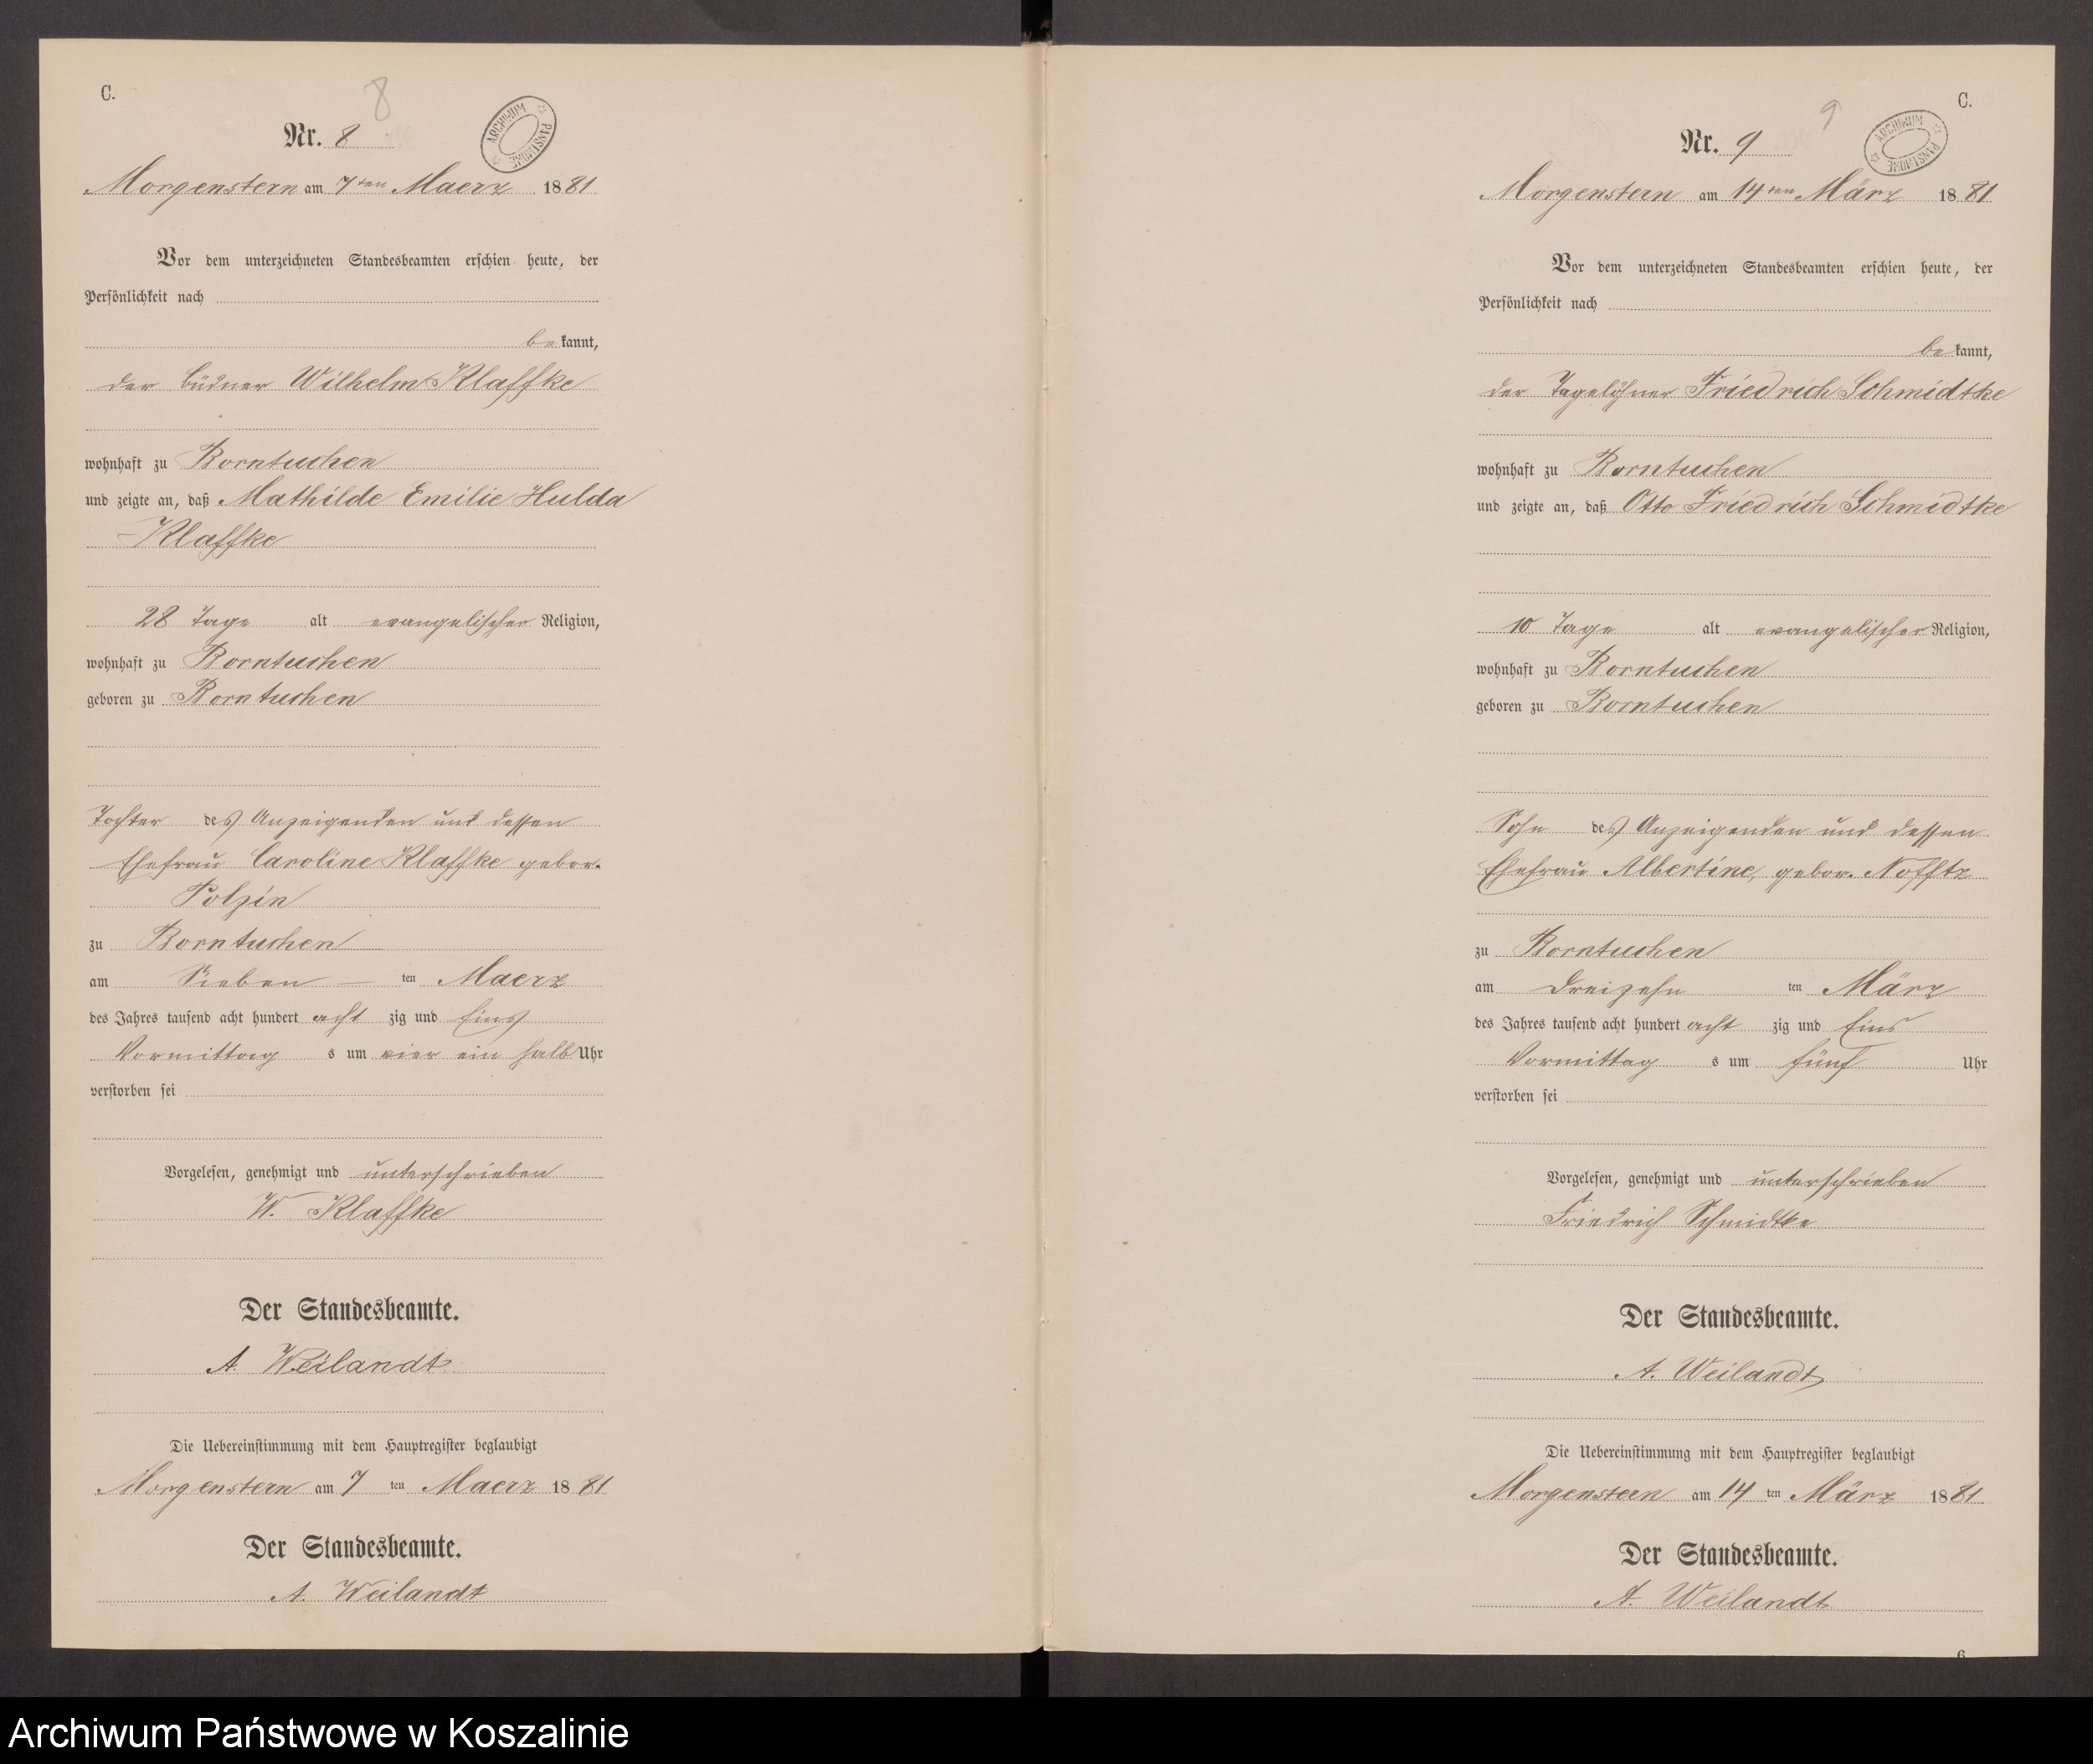 C.
8
Nr. 8
ARCHIWUM PAŃSTWOWE
Morgenstern am 7ten Maerz 1881
Vor dem unterzeichneten Standesbeamten erschien heute, der
Persönlichkeit nach
bekannt,
der Büdner Wilhelm Klaffke
wohnhaft zu Borntuchen
und zeigte an, daß Mathilde Emilie Hulda
Klaffke
28 Tage alt evangelischer Religion,
wohnhaft zu Borntuchen
geboren zu Borntuchen
Tochter des Anzeigenden und dessen
Ehefrau Caroline Klaffke gebor.
Polzin
zu Borntuchen
am Sieben — ten Maerz
des Jahres tausend acht hundert acht zig und Eins
Vormittag s um vier ein halb Uhr
verstorben sei
Vorgelesen, genehmigt und unterschrieben
W. Klaffke
Der Standesbeamte.
A. Weilandt
Die Uebereinstimmung mit dem Hauptregister beglaubigt
Morgenstern am 7 ten Maerz 1881
Der Standesbeamte.
A. Weilandt
C.
9
Nr. 9
ARCHIWUM PAŃSTWOWE
Morgenstern am 14ten März 1881
Vor dem unterzeichneten Standesbeamten erschien heute, der
Persönlichkeit nach
bekannt,
der Tagelöhner Friedrich Schmidtke
wohnhaft zu Borntuchen
und zeigte an, daß Otto Friedrich Schmidtke
10 Tage alt evangelischer Religion,
wohnhaft zu Borntuchen
geboren zu Borntuchen
Sohn des Anzeigenden und dessen
Ehefrau Albertine, gebor. Nofftz
zu Borntuchen
am Dreizehn ten März
des Jahres tausend acht hundert acht zig und Eins
Vormittag s um fünf Uhr
verstorben sei
Vorgelesen, genehmigt und unterschrieben
Friedrich Schmidtke
Der Standesbeamte.
A. Weilandt
Die Uebereinstimmung mit dem Hauptregister beglaubigt
Morgenstern am 14 ten März 1881
Der Standesbeamte.
A. Weilandt
6
Archiwum Państwowe w Koszalinie